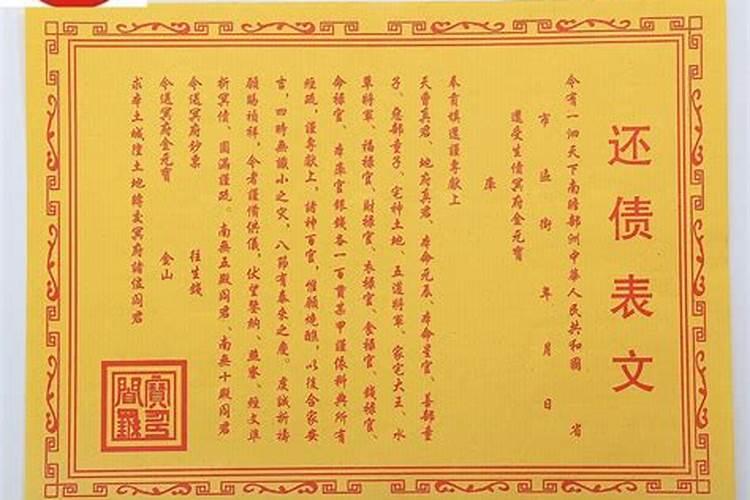 还债表文
今有一泗天下南瞻部洲中華人民共和國 省
市 區 街 年 月 日
還受生債冥府金元寶
庫
奉育填還謹專獻上
天曹真君、地府真君、本命元辰、本命星官、善部童
子、惡部童子、宅神土地、五道將軍、家宅大王、水
草將軍、福祿官、財祿官、衣祿官、食祿官、錢祿官、
命祿官、本庫官銀錢各一百貫某甲謹依科典所有
經疏,謹專獻上,諸神百官,惟願燒醮,以後合家安
吉,四時無識小之災,八節有泰來之慶。虔誠祈禱
願賜禎祥,今者謹備供儀,伏望鑒納、 經文準
折冥債、圓滿謹疏。南無五殿閻君、南無十殿閻君
今送冥府鈔票 往生錢
今送冥府金元寶 金山
求本土城隍土地轉交冥府諸位閻君